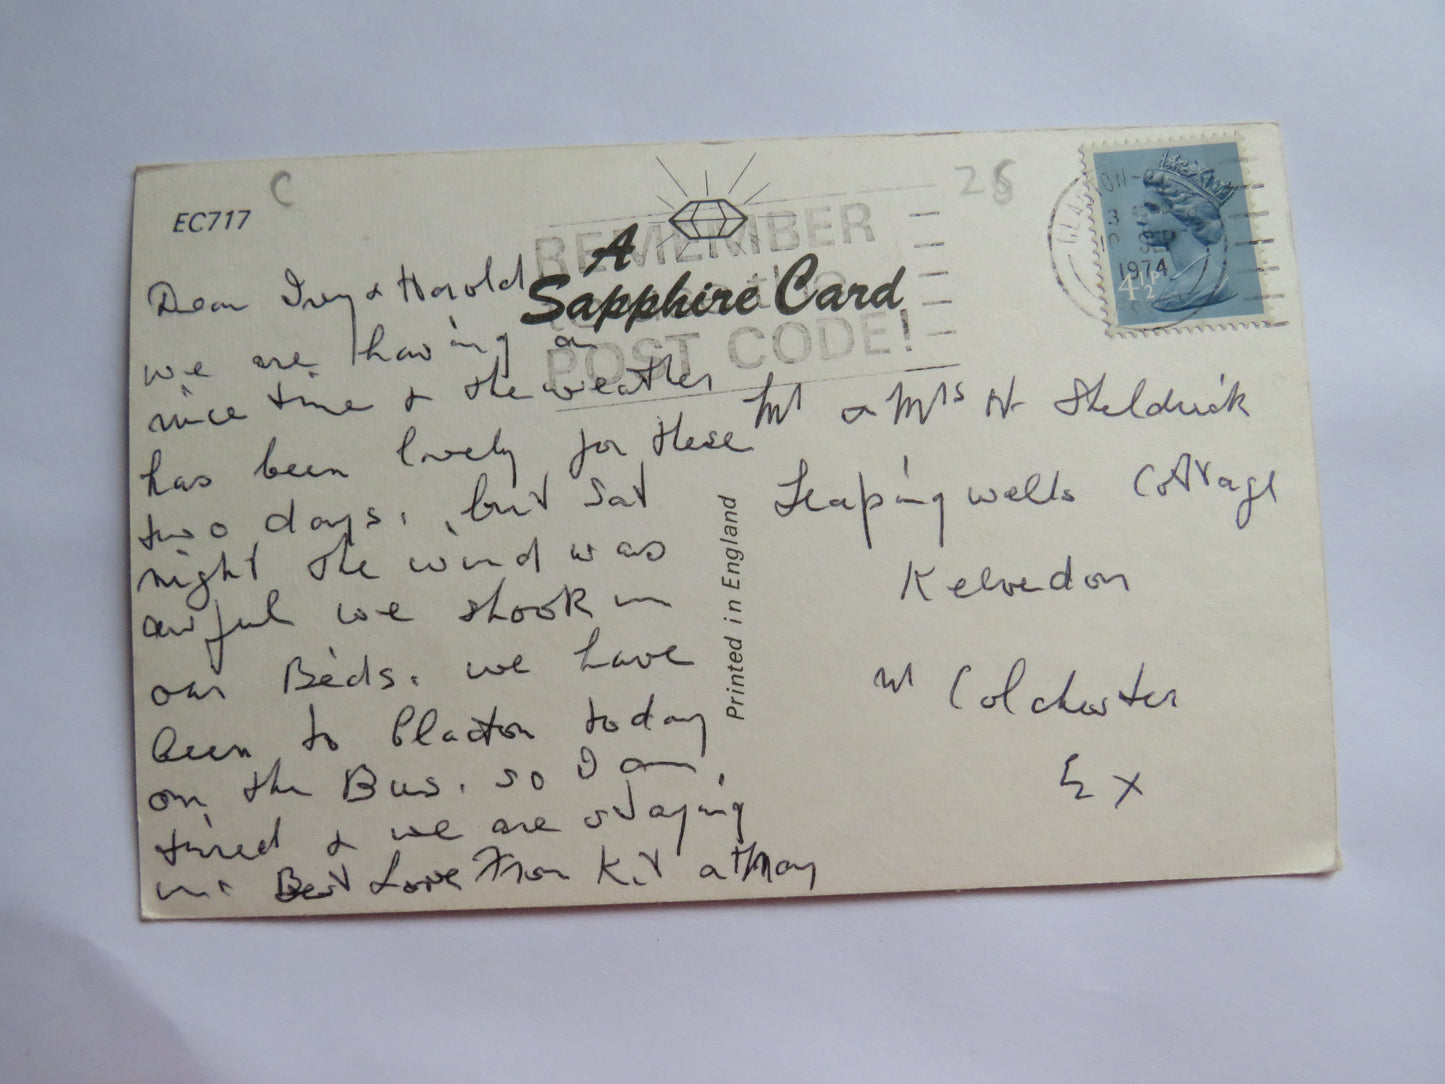 EC717
C
26
A
Sapphire Card
REMEMBER
the
POST CODE!
CLACTON-O
SEP
1974
4½P
Dear Ivy & Harold
we are having a
nice time & the weather
has been lovely for these
two days, but Sat
night the wind was
awful we shook in
our Beds. we have
been to Clacton today
on the Bus. so I am
tired & we are staying
in. Best Love From Kit & May
Printed in England
Mr & Mrs H Sheldrick
Leaping wells Cottage
Kelvedon
Nr Colchester
Ex